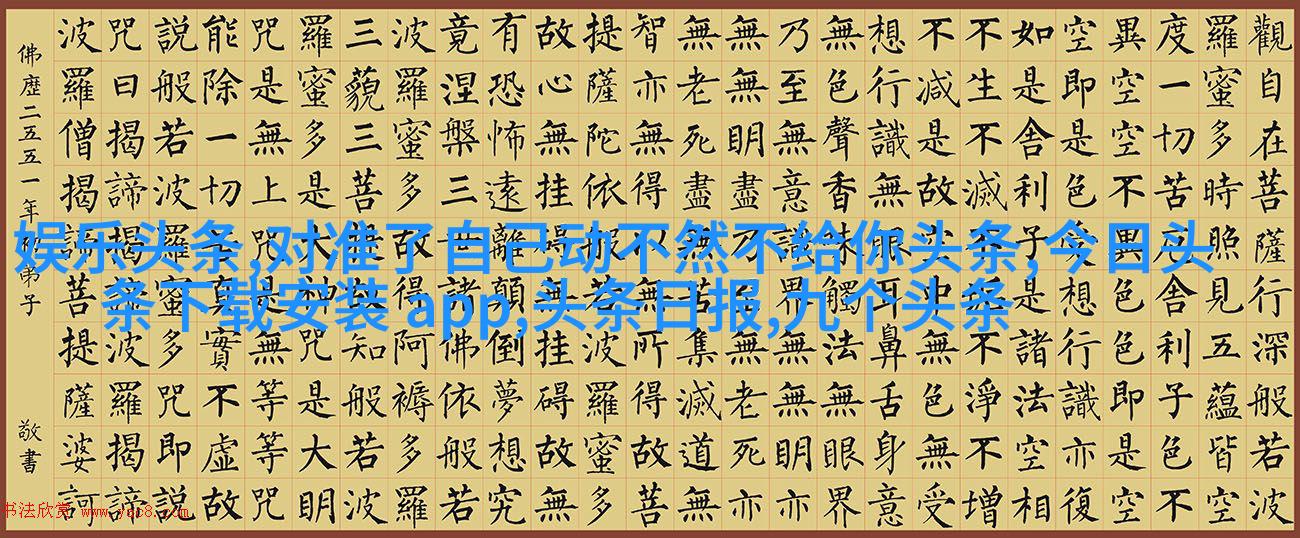 觀自在菩薩行深般若波
羅蜜多時照見五蘊皆空
度一切苦厄舍利子色不
異空空不異色色即是空
空即是色受想行識亦復
如是舍利子是諸法空相
不生不滅不垢不淨不增
不減是故空中無色無受
想行識無眼耳鼻舌身意
無色聲香味觸法無眼界
乃至無意識界無無明亦
無無明盡乃至無老死亦
無老死盡無苦集滅道無
智亦無得以無所得故菩
提薩陀依般若波羅蜜多
故心無挂礙無挂礙故無
有恐怖遠離顛倒夢想究
竟涅槃三世諸佛依般若
波羅蜜多故得阿褥多羅
三藐三菩提故知般若波
羅蜜多是大神咒是大明
咒是無上咒是無等等咒
能除一切苦真實不虛故
說般若波羅蜜多咒即說
咒曰揭諦揭諦波羅揭諦
波羅僧揭諦菩提薩婆訶
佛歷二五五一年 弟子 敬書
娱乐头条,对准了自己动不然不给你头条,今日头
条下载安装 app,头条日报,九个头条
书法欣赏 www.yac8.com